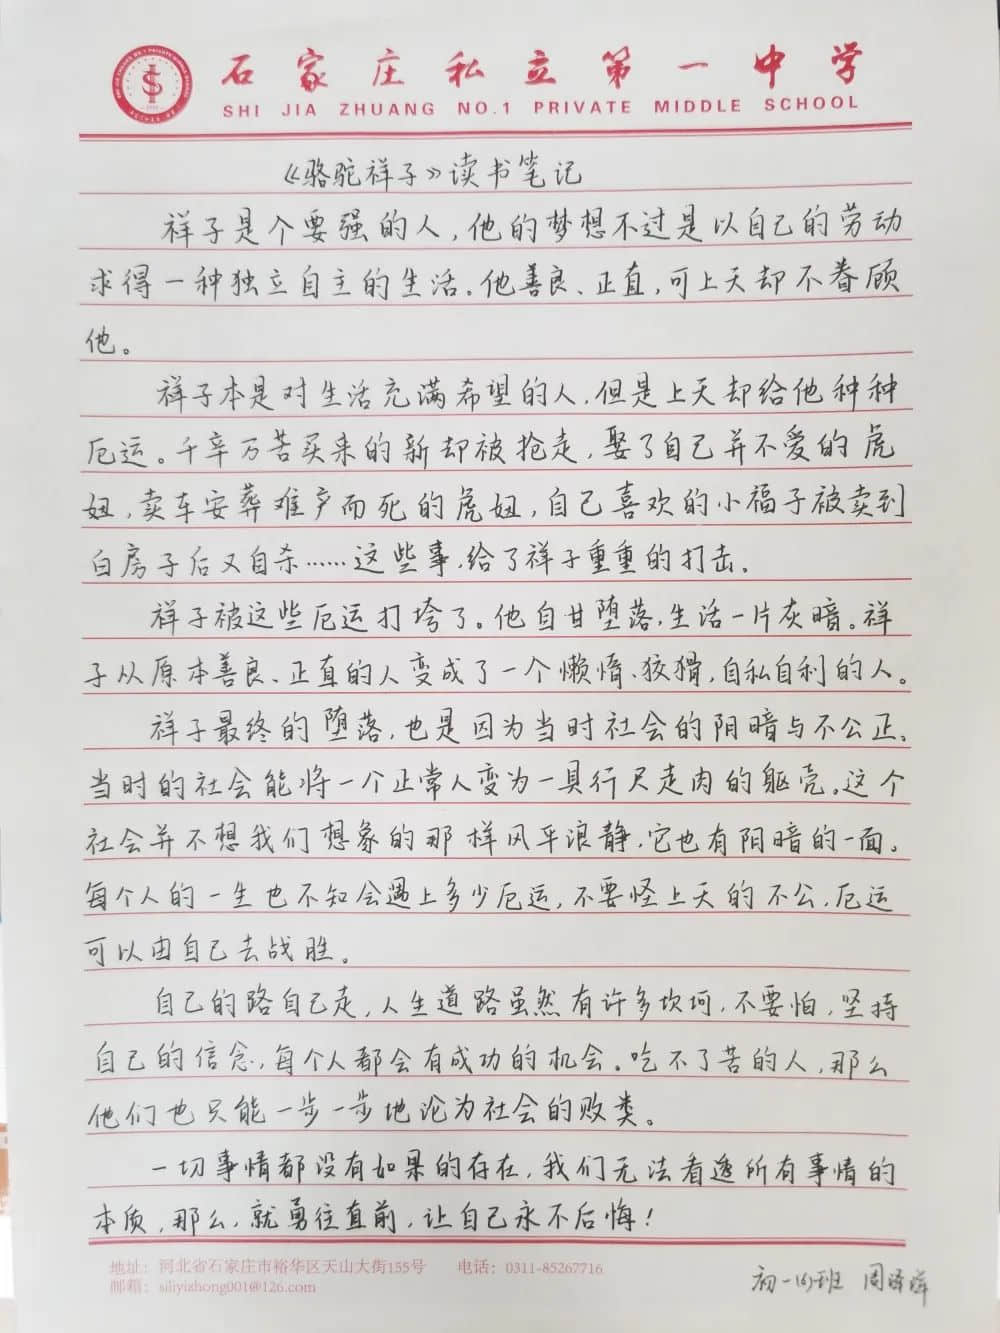 石家庄私立第一中学
SHI JIA ZHUANG NO.1 PRIVATE MIDDLE SCHOOL
《骆驼祥子》读书笔记
祥子是个要强的人，他的梦想不过是以自己的劳动
求得一种独立自主的生活。他善良、正直，可上天却不眷顾
他。
祥子本是对生活充满希望的人，但是上天却给他种种
厄运。千辛万苦买来的新却被抢走，娶了自己并不爱的虎
妞，卖车安葬难产而死的虎妞，自己喜欢的小福子被卖到
白房子后又自杀……这些事，给了祥子重重的打击。
祥子被这些厄运打垮了。他自甘堕落，生活一片灰暗。祥
子从原本善良、正直的人变成了一个懒惰、狡猾，自私自利的人。
祥子最终的堕落，也是因为当时社会的阴暗与不公正。
当时的社会能将一个正常人变为一具行尺走肉的躯壳。这个
社会并不想我们想象的那样风平浪静，它也有阴暗的一面。
每个人的一生也不知会遇上多少厄运，不要怪上天的不公，厄运
可以由自己去战胜。
自己的路自己走，人生道路虽然有许多坎坷，不要怕，坚持
自己的信念，每个人都会有成功的机会。吃不了苦的人，那么
他们也只能一步一步地论为社会的败类。
一切事情都没有如果的存在，我们无法看透所有事情的
本质，那么，就勇往直前，让自己永不后悔！
地址：河北省石家庄市裕华区天山大街155号 电话：0311-85267716
邮箱：siliyizhong001@126.com
初一 班 周